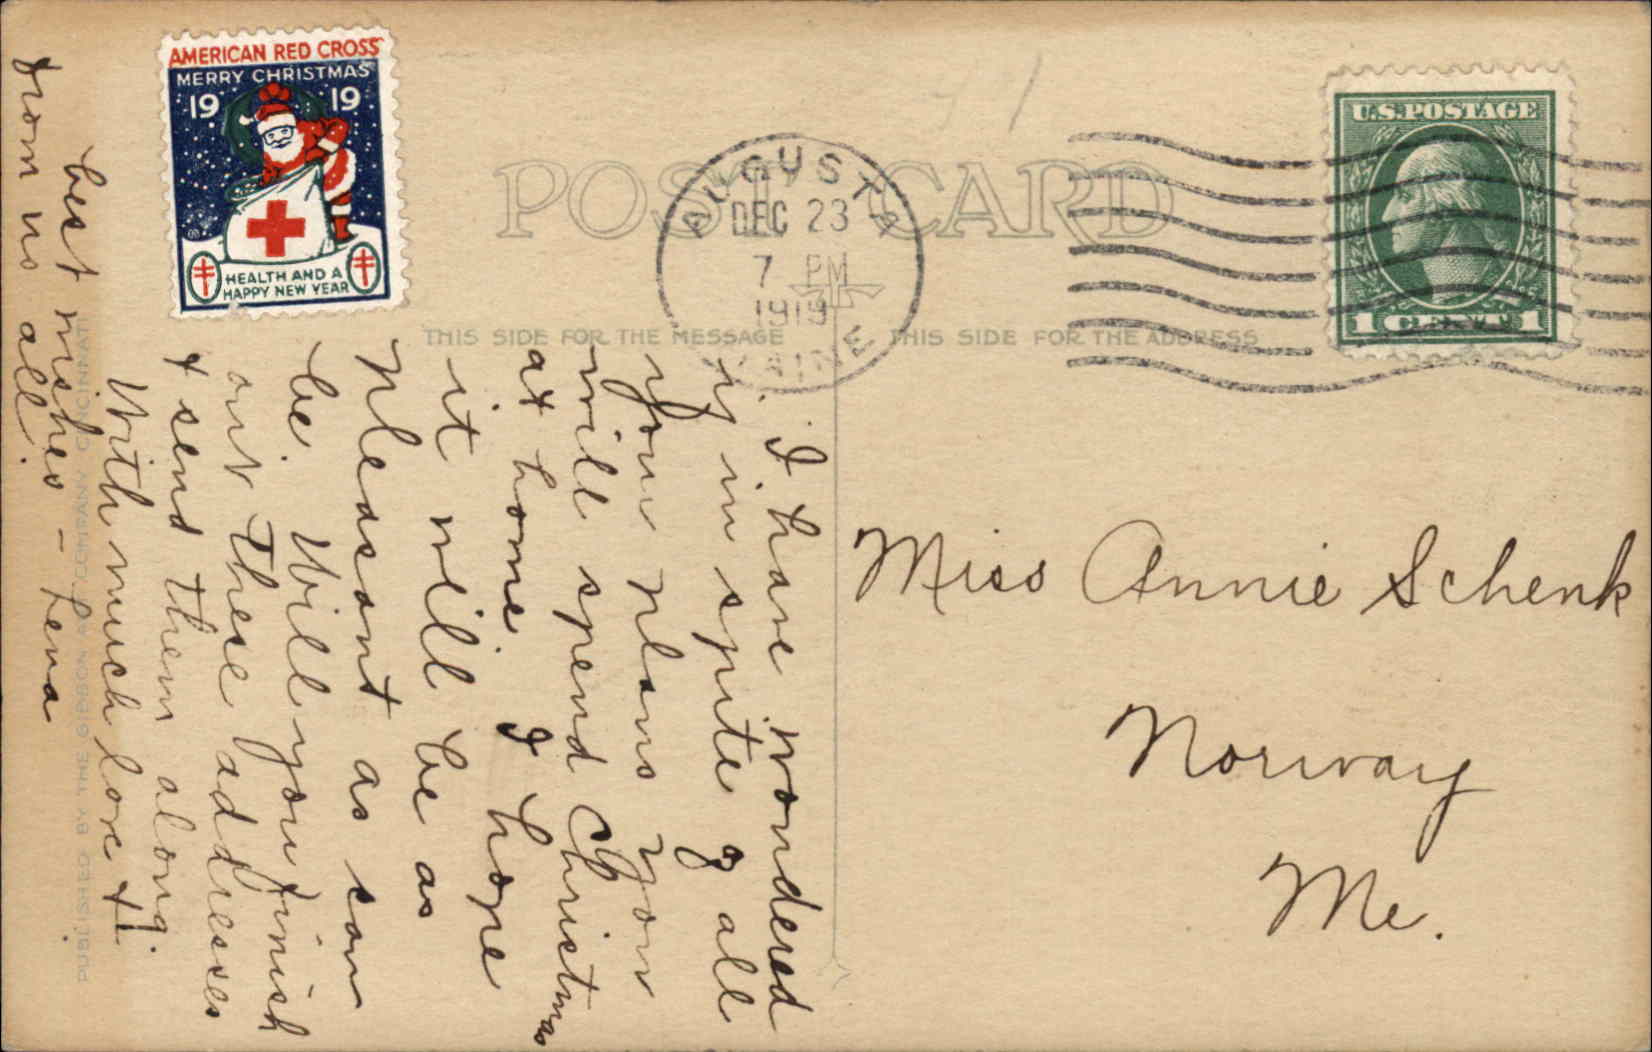 AMERICAN RED CROSS
MERRY CHRISTMAS
19 19
HEALTH AND A
HAPPY NEW YEAR
POST CARD
AUGUSTA
DEC 23
7 PM
1919
MAINE
U.S. POSTAGE
1 CENT 1
THIS SIDE FOR THE MESSAGE
THIS SIDE FOR THE ADDRESS
I have wondered
if in spite of all
your plans you
will spend Christmas
at home. I hope
it will be as
pleasant as can
be. Will you finish
out these addresses
& send them along.
With much love &
best wishes - Lena
from us all.
Miss Annie Schenk
Norway
Me.
PUBLISHED BY THE GIBSON ART COMPANY CINCINNATI